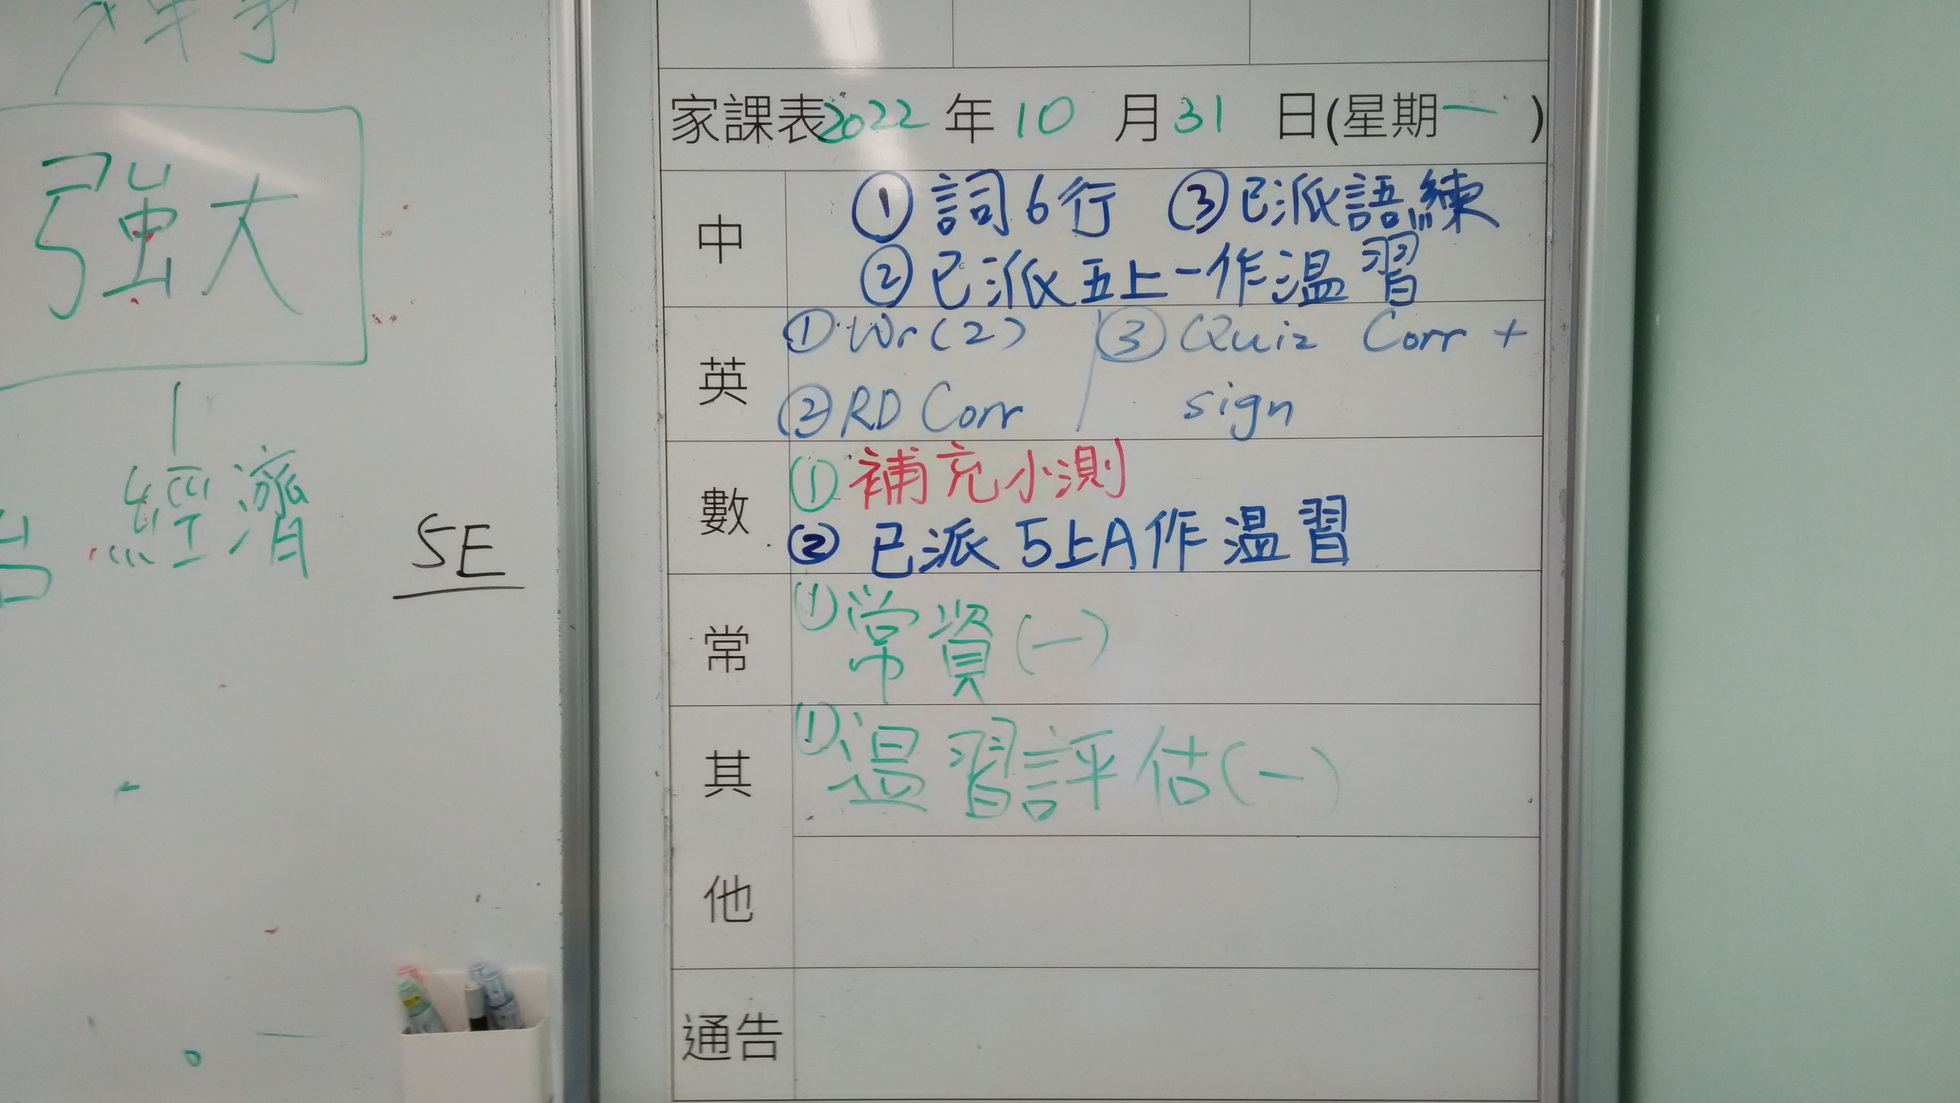 強大
經濟
5E
家課表2022年10月31日(星期一)
中
① 詞6行 ③已派語練
②已派五上一作温習
英
①Wr(2) ③Quiz Corr +
②RD Corr sign
數
①補充小測
②已派5上A作温習
常
①常資(一)
其他
①温習評估(一)
通告